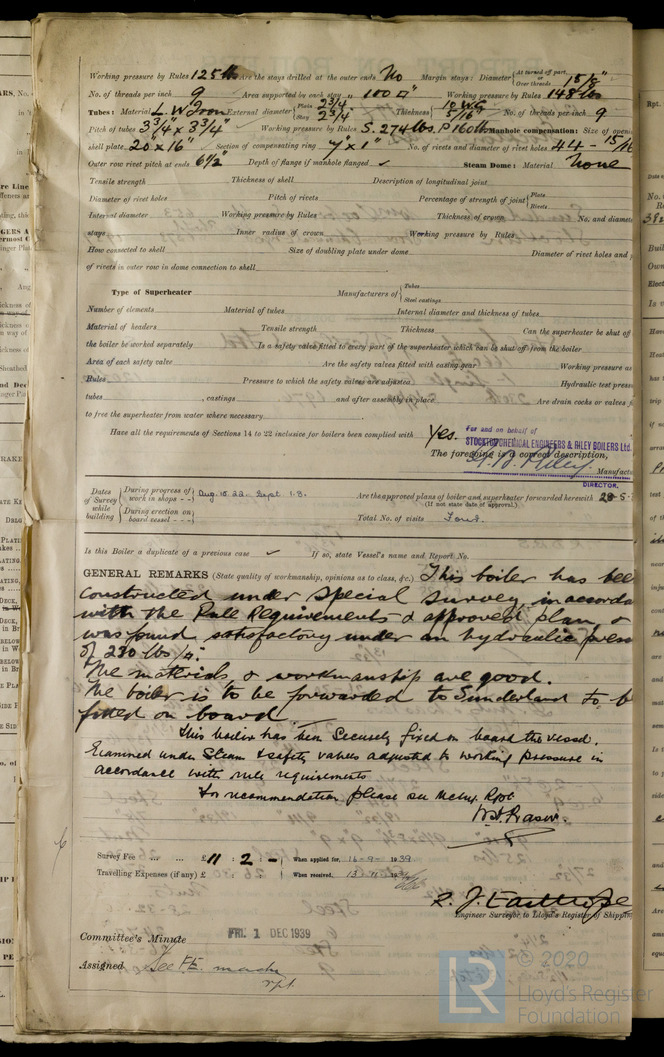 Working pressure by Rules 125 lb Are the stays drilled at the outer ends No Margin stays: Diameter { At turned off part, or Over threads 1 5/8"
No. of threads per inch 9 Area supported by each stay 100 □" Working pressure by Rules 148 lbs
Tubes: Material L.W. Iron External diameter { Plain 2 3/4" Stay 2 3/4" Thickness { 10 W.G. 5/16" No. of threads per inch 9
Pitch of tubes 3 3/4" x 3 3/4" Working pressure by Rules S. 274 lbs. P 160 lbs Manhole compensation: Size of open
shell plate 20" x 16" Section of compensating ring 7" x 1" No. of rivets and diameter of rivet holes 44 - 15/16
Outer row rivet pitch at ends 6 1/2" Depth of flange if manhole flanged ✓ Steam Dome: Material None
Tensile strength Thickness of shell Description of longitudinal joint
Diameter of rivet holes Pitch of rivets Percentage of strength of joint { Plate Rivets
Internal diameter Working pressure by Rules Thickness of crown No. and diamet
stays Inner radius of crown Working pressure by Rules
How connected to shell Size of doubling plate under dome Diameter of rivet holes and
of rivets in outer row in dome connection to shell
Type of Superheater Manufacturers of { Tubes Steel castings
Number of elements Material of tubes Internal diameter and thickness of tubes
Material of headers Tensile strength Thickness Can the superheater be shut off
the boiler be worked separately Is a safety valve fitted to every part of the superheater which can be shut off from the boiler
Area of each safety valve Are the safety valves fitted with easing gear Working pressure as
Rules Pressure to which the safety valves are adjusted Hydraulic test press
tubes , castings and after assembly in place Are drain cocks or valves f
to free the superheater from water where necessary
Have all the requirements of Sections 14 to 22 inclusive for boilers been complied with Yes.
For and on behalf of
STOCKTON CHEMICAL ENGINEERS & RILEY BOILERS Ltd.
The foregoing is a correct description,
Riley. Manufactu
DIRECTOR.
Dates of Survey while building { During progress of work in shops - - Aug. 15. 22. Sept. 1. 8. Are the approved plans of boiler and superheater forwarded herewith 23-5-
(If not state date of approval.)
During erection on board vessel - - - Total No. of visits Four.
Is this Boiler a duplicate of a previous case ✓ If so, state Vessel's name and Report No.
GENERAL REMARKS (State quality of workmanship, opinions as to class, &c.) This boiler has bee
constructed under special survey, in accorda
with the Rule Requirements & approved plan, &
was found satisfactory under an hydraulic press
of 230 lbs/□".
The materials & workmanship are good.
The boiler is to be forwarded to Sunderland to b
fitted on board
This boiler has been securely fixed on board the vessel.
Examined under steam & safety valves adjusted to working pressure in
accordance with rule requirements
For recommendation please see Mchy. Rpt
Survey Fee ... ... £11 : 2 : - When applied for, 16-9- 1939
Travelling Expenses (if any) £ : : When received, 13-11-
Engineer Surveyor to Lloyd's Register of Shippin
Committee's Minute FRI 1 DEC 1939
Assigned See F.E. machy
rpt.
© 2020
LR
Lloyd's Register
Foundation